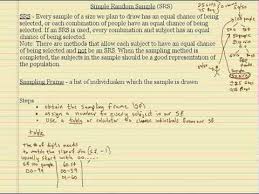 Simple Random Sample (SRS)
SRS - Every sample of a size we plan to draw has an equal chance of being
selected, or each combination of people have an equal chance of being
selected. If an SRS is used, every combination and subject has an equal
chance of being selected.
Note: There are methods that allow each subject to have an equal chance
of being selected and not be an SRS. When the sampling method is
completed, the subjects in the sample should be a good representation of
the population.
Sampling Frame - a list of individuals from which the sample is drawn
Steps
• obtain the sampling frame (SF)
• assign a number to every subject in our SF
• Use a table or calculator to choose individuals from our SF
Table
The # of digits needs
to match the size of the (SF - 1)
Usually start with 00......